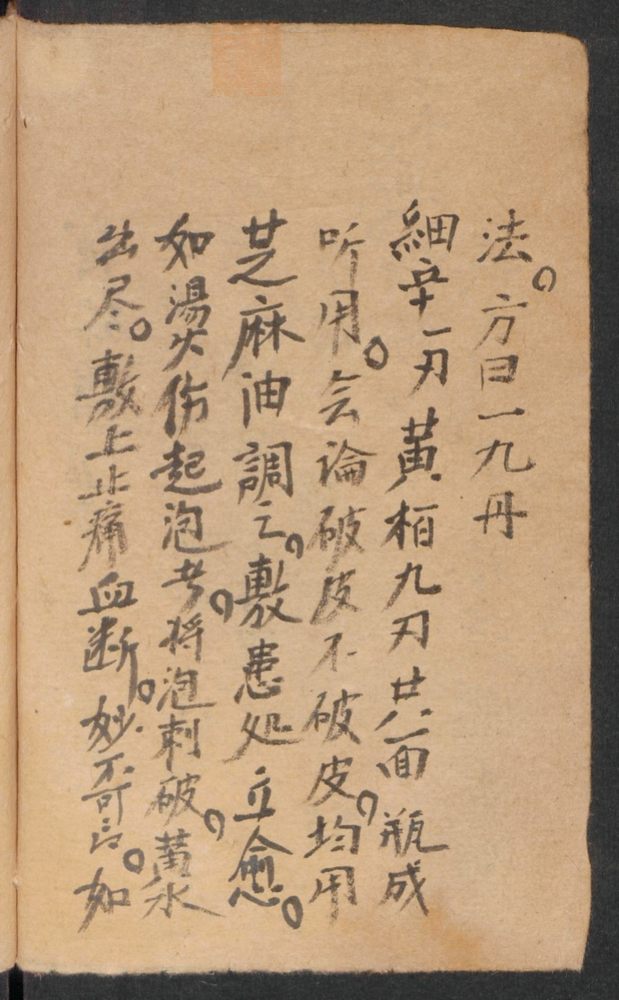 法。方曰一九丹
細辛一刃黃柏九刃共面瓶成
听用。会論破皮不破皮，均用
芝麻油調之，敷患处立愈。
如湯火伤起泡者，将泡刺破，黃水
出尽。敷上止痛血断，妙不可言。如